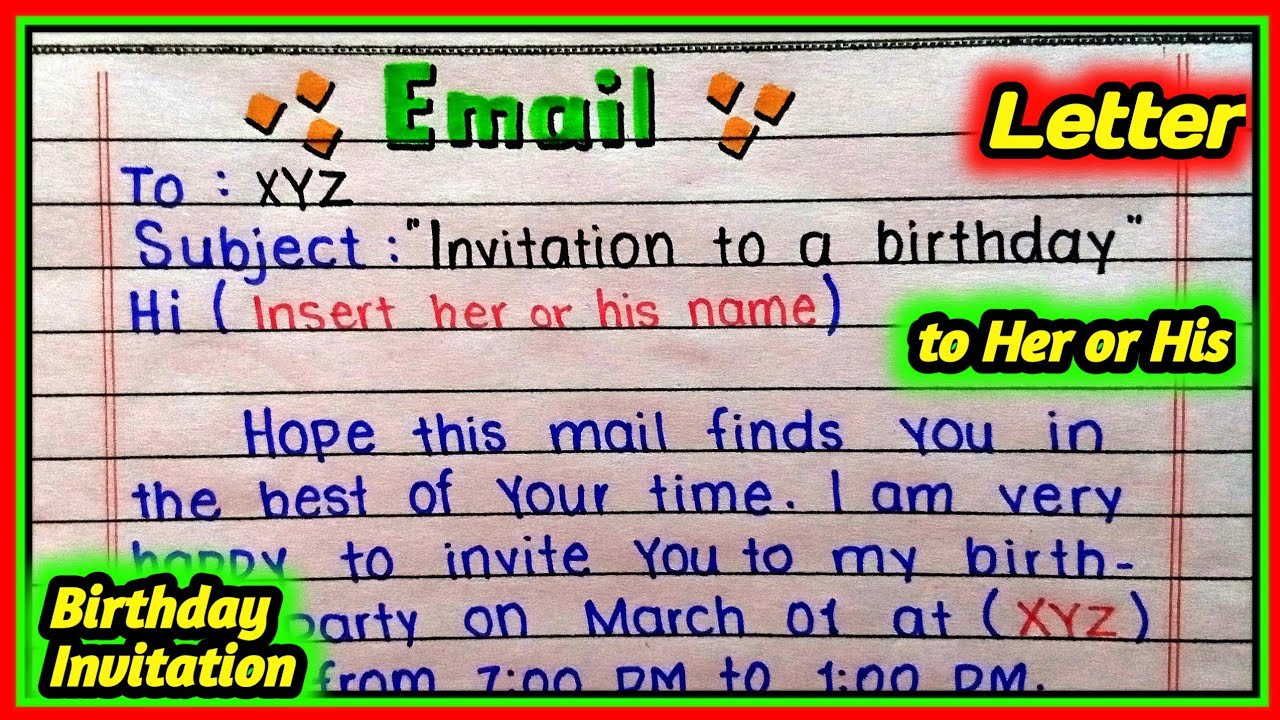 Email
Letter
To : XYZ
Subject : "Invitation to a birthday"
Hi ( Insert her or his name)
to Her or His
Hope this mail finds you in
the best of your time. I am very
happy to invite you to my birth-
party on March 01 at (XYZ)
from 7:00 PM to 1:00 PM.
Birthday
Invitation